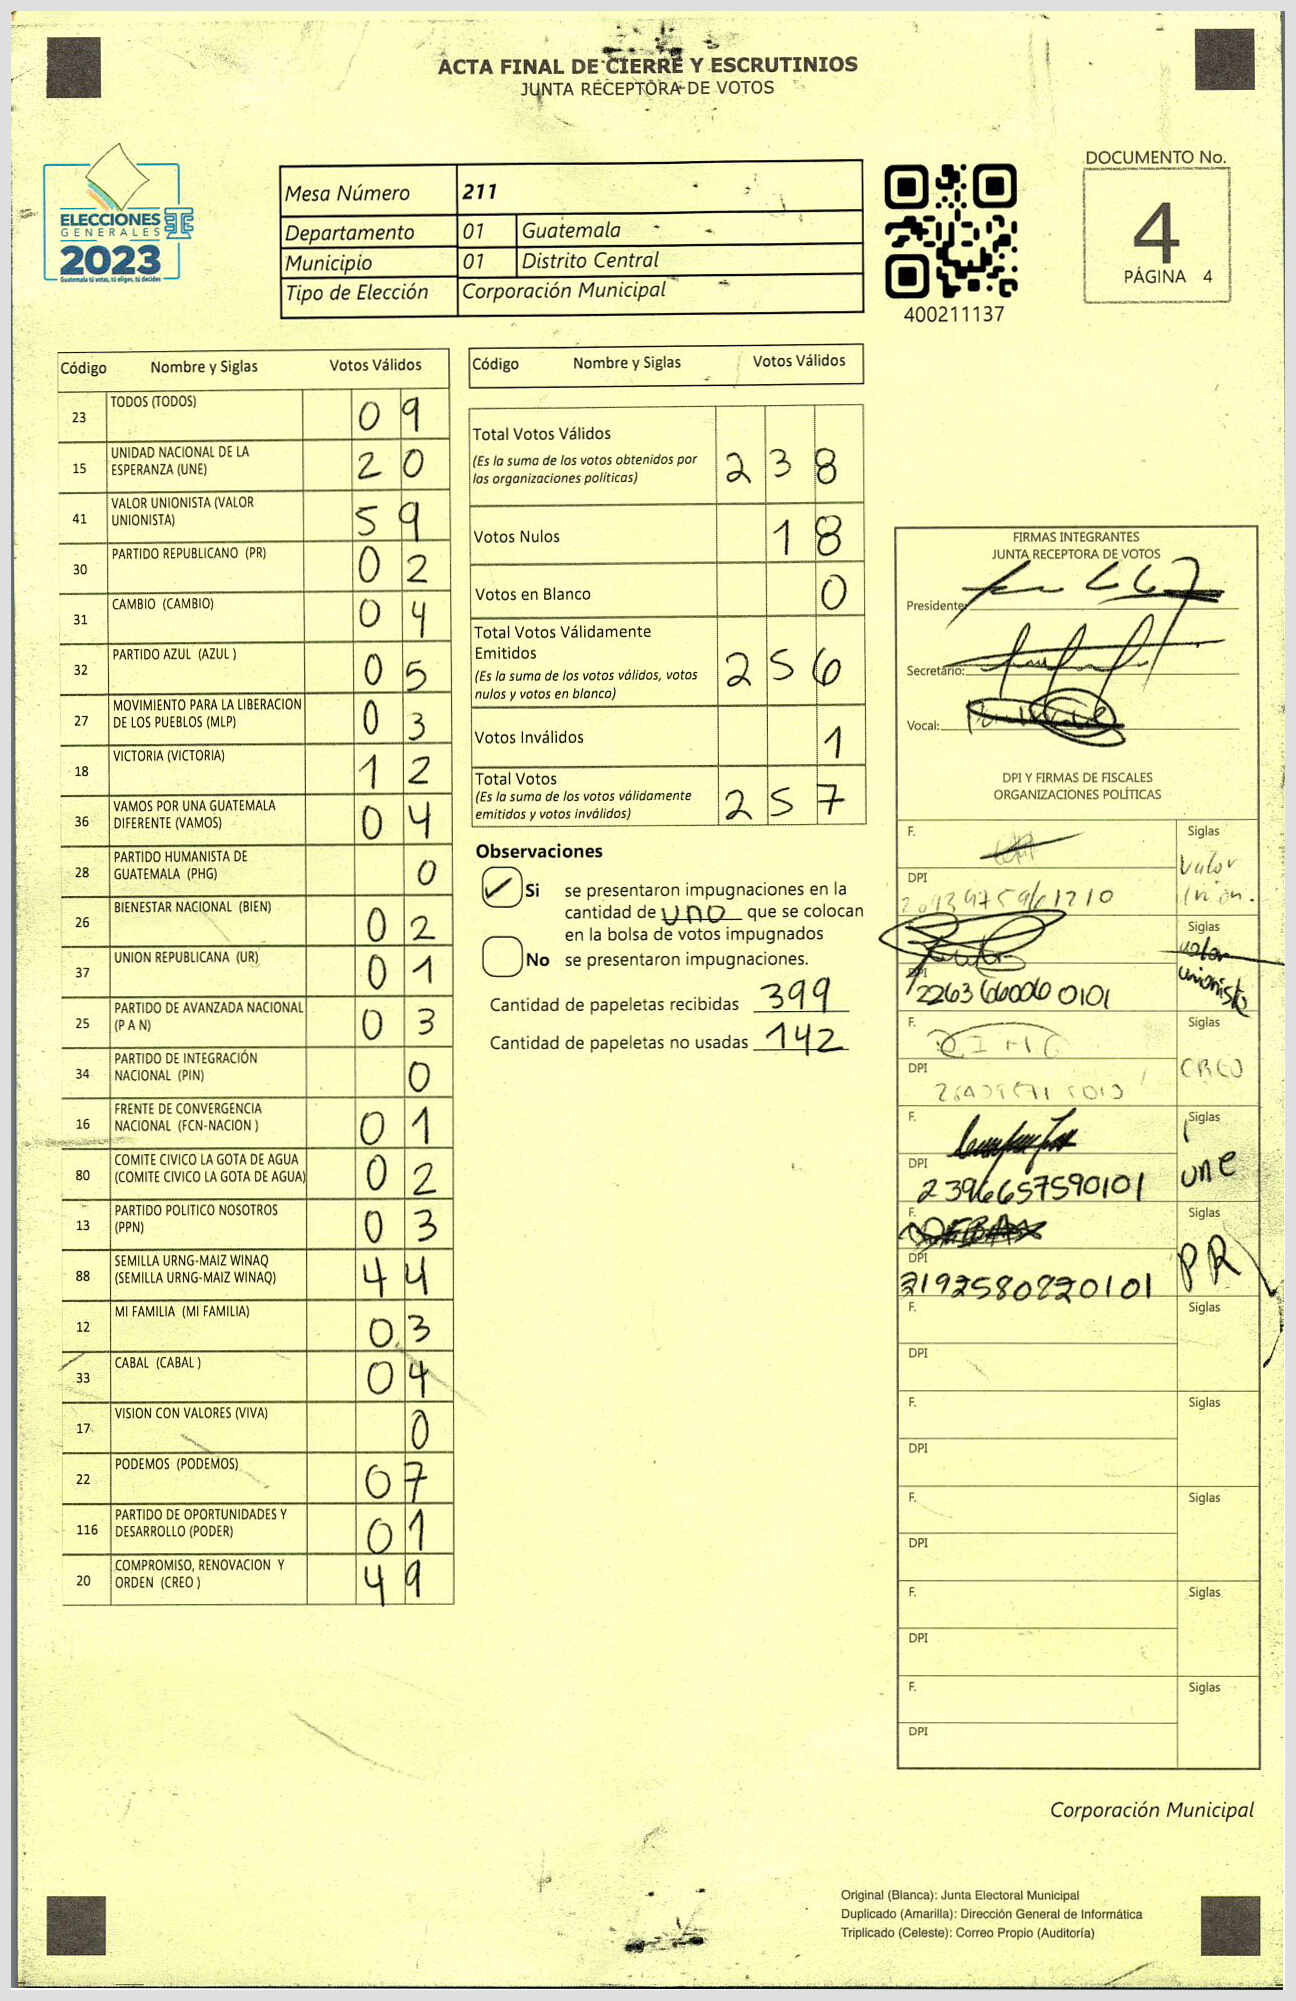 ACTA FINAL DE CIERRE Y ESCRUTINIOS
JUNTA RECEPTORA DE VOTOS
ELECCIONES
GENERALES
2023
Guatemala tú votas, tú eliges, tú decides
Mesa Número 211
Departamento 01 Guatemala
Municipio 01 Distrito Central
Tipo de Elección Corporación Municipal
400211137
DOCUMENTO No.
4
PÁGINA 4
Código Nombre y Siglas Votos Válidos
23 TODOS (TODOS) 09
15 UNIDAD NACIONAL DE LA ESPERANZA (UNE) 20
41 VALOR UNIONISTA (VALOR UNIONISTA) 59
30 PARTIDO REPUBLICANO (PR) 02
31 CAMBIO (CAMBIO) 04
32 PARTIDO AZUL (AZUL ) 05
27 MOVIMIENTO PARA LA LIBERACION DE LOS PUEBLOS (MLP) 03
18 VICTORIA (VICTORIA) 12
36 VAMOS POR UNA GUATEMALA DIFERENTE (VAMOS) 04
28 PARTIDO HUMANISTA DE GUATEMALA (PHG) 0
26 BIENESTAR NACIONAL (BIEN) 02
37 UNION REPUBLICANA (UR) 01
25 PARTIDO DE AVANZADA NACIONAL (P A N) 03
34 PARTIDO DE INTEGRACIÓN NACIONAL (PIN) 0
16 FRENTE DE CONVERGENCIA NACIONAL (FCN-NACION ) 01
80 COMITE CIVICO LA GOTA DE AGUA (COMITE CIVICO LA GOTA DE AGUA) 02
13 PARTIDO POLITICO NOSOTROS (PPN) 03
88 SEMILLA URNG-MAIZ WINAQ (SEMILLA URNG-MAIZ WINAQ) 44
12 MI FAMILIA (MI FAMILIA) 03
33 CABAL (CABAL ) 04
17 VISION CON VALORES (VIVA) 0
22 PODEMOS (PODEMOS) 07
116 PARTIDO DE OPORTUNIDADES Y DESARROLLO (PODER) 01
20 COMPROMISO, RENOVACION Y ORDEN (CREO ) 49
Código Nombre y Siglas Votos Válidos
Total Votos Válidos 238
(Es la suma de los votos obtenidos por
las organizaciones políticas)
Votos Nulos 18
Votos en Blanco 0
Total Votos Válidamente
Emitidos 256
(Es la suma de los votos válidos, votos
nulos y votos en blanco)
Votos Inválidos 1
Total Votos 257
(Es la suma de los votos válidamente
emitidos y votos inválidos)
Observaciones
Si se presentaron impugnaciones en la
cantidad de uno que se colocan
en la bolsa de votos impugnados
No se presentaron impugnaciones.
Cantidad de papeletas recibidas 399
Cantidad de papeletas no usadas 142
FIRMAS INTEGRANTES
JUNTA RECEPTORA DE VOTOS
Presidente:
Secretario:
Vocal:
DPI Y FIRMAS DE FISCALES
ORGANIZACIONES POLÍTICAS
F. Siglas
Valor
DPI Union.
Siglas
valor
unionista
DPI
2263660060101
F. Siglas
DPI CREO
F. Siglas
DPI une
2396657590101
F. Siglas
DPI PR
2192580820101
F. Siglas
DPI
F. Siglas
DPI
F. Siglas
DPI
F. Siglas
DPI
F. Siglas
DPI
Corporación Municipal
Original (Blanca): Junta Electoral Municipal
Duplicado (Amarilla): Dirección General de Informática
Triplicado (Celeste): Correo Propio (Auditoría)